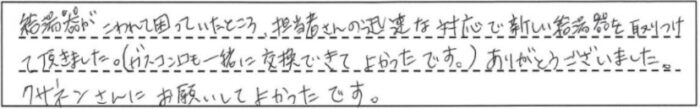 給湯器がこわれて困っていたところ、担当者さんの迅速な対応で新しい給湯器を取りつけ
て頂きました。(ガスコンロも一緒に交換できてよかったです。)ありがとうございました。
クサネンさんにお願いしてよかったです。